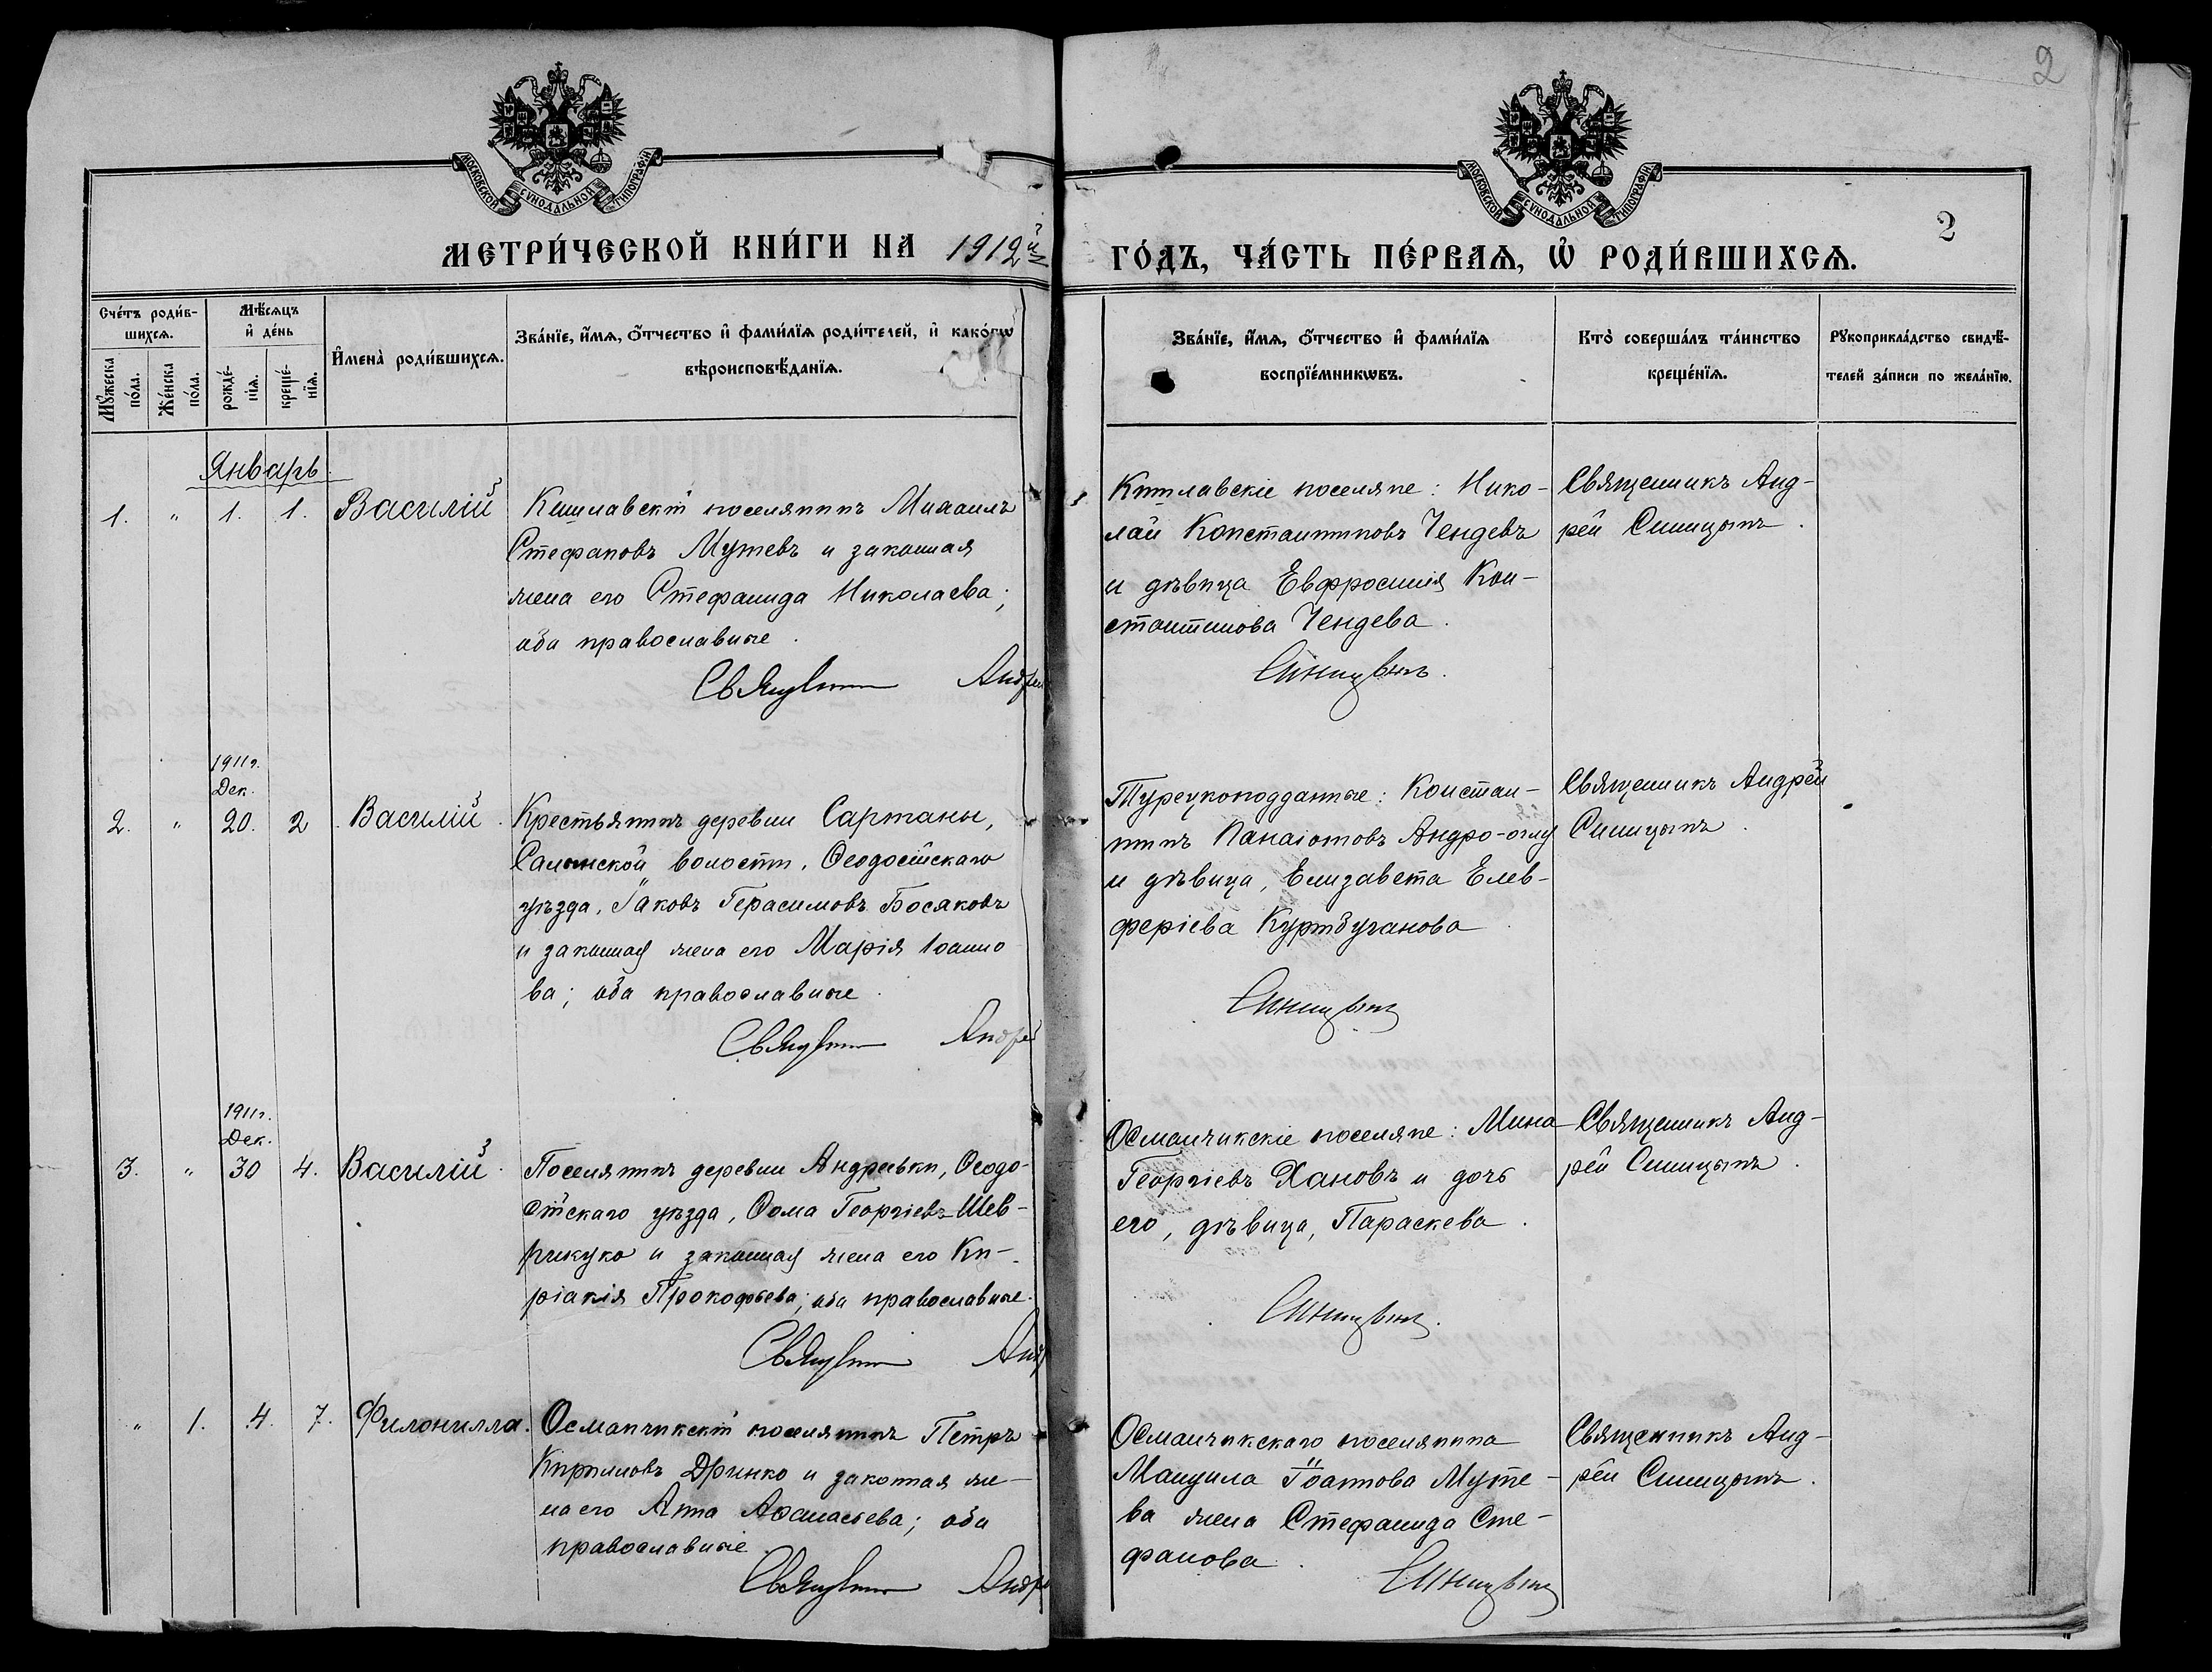 2
МОСКОВСКОЙ СУНОДАЛЬНОЙ ТИПОГРАФІИ
МОСКОВСКОЙ СУНОДАЛЬНОЙ ТИПОГРАФІИ
2
МЕТРИ́ЧЕСКОЙ КНИ́ГИ НА 1912й
ГО́ДЪ, ЧА́СТЬ ПЕ́РВАѦ, Ѽ РОДИ́ВШИХСѦ.
Сче́тъ роди́в-
шихсѧ.
Мꙋ́жеска
по́ла.
Же́нска
по́ла.
Мѣ́сѧцъ
и҆ де́нь
рожде́-
нїѧ.
креще́-
нїѧ.
И҆мена̀ роди́вшихсѧ.
Зва́нїе, и҆́мѧ, ѻ҆́тчество и҆ фами́лїѧ роди́телей, и҆ како́гѡ
вѣроисповѣ́данїѧ.
Зва́нїе, и҆́мѧ, ѻ҆́тчество и҆ фами́лїѧ
воспрїе́мникѡвъ.
Кто̀ соверша́лъ та́инство
креще́нїѧ.
Рꙋкоприкла́дство свидѣ́-
телей за́писи по жела́нїю.
Январь
1. " 1. 1. Василій
Кишлавскій поселянинъ Михаилъ
Стефановъ Мутевъ и законная
жена его Стефанида Николаева;
оба православные.
Священникъ Андрей
Кишлавскіе поселяне: Нико-
лай Константиновъ Чендевъ
и дѣвица Евфросинія Кон-
стантинова Чендева.
Синицынъ.
Священникъ Анд-
рей Синицынъ.
1911г.
Дек.
2. " 20. 2 Василій.
Крестьянинъ деревни Сартаны,
Салынской волости, Ѳеодосійскаго
уѣзда, Іаковъ Герасимовъ Босяковъ
и законная жена его Марія Іоанно
ва; оба православные.
Священникъ Андрей
Турецкоподданные: Констан-
тинъ Панаіотовъ Андро-оглу
и дѣвица, Елизавета Елев-
феріева Куртзуганова
Синицынъ
Священникъ Андрей
Синицынъ.
1911г.
Дек.
3. " 30 4. Василій.
Поселянинъ деревни Андреевки, Ѳеодо-
сійскаго уѣзда, Ѳома Георгіевъ Шев-
рикуко и законная жена его Ки-
ріакія Прокофьева; оба православные.
Священникъ Анд
Османчикскіе поселяне: Мина
Георгіевъ Хановъ и дочь
его, дѣвица, Параскева.
Синицынъ.
Священникъ Анд-
рей Синицынъ.
" 1. 4. 7. Филонилла.
Османчикскій поселянинъ Петръ
Кирилловъ Дринко и законная же-
на его Анна Аѳанасьева; оба
православные.
Священникъ Андре
Османчикскаго поселянина
Мануила Іоаннова Муте-
ва жена Стефанида Сте-
фанова.
Синицынъ
Священникъ Анд-
рей Синицынъ.